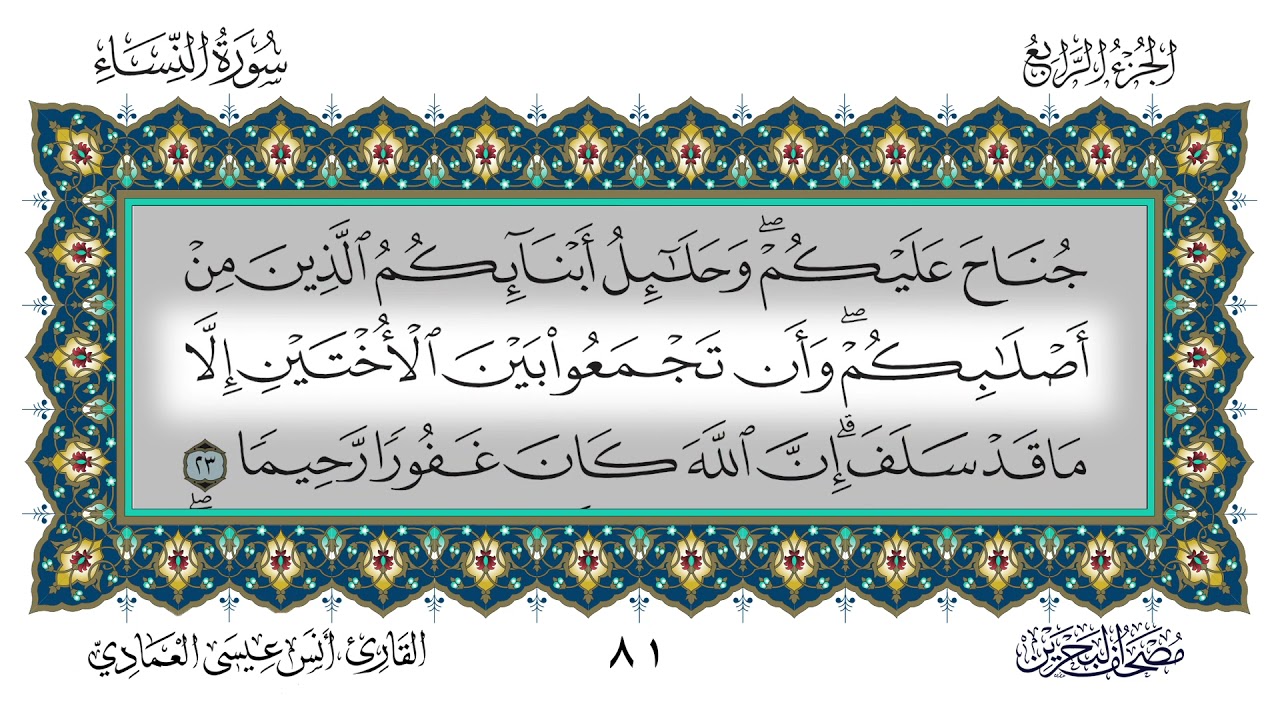 الجُزْءُ الرَّابِعُ
سُورَةُ النِّسَاءِ
جُنَاحَ عَلَيْكُمْۖ وَحَلَـٰٓئِلُ أَبْنَآئِكُمُ ٱلَّذِينَ مِنْ
أَصْلَـٰبِكُمْۖ وَأَن تَجْمَعُوا۟ بَيْنَ ٱلْأُخْتَيْنِ إِلَّا
مَا قَدْ سَلَفَۗ إِنَّ ٱللَّهَ كَانَ غَفُورًا رَّحِيمًا ٢٣
ۖ
مُصْحَفُ البَحْرَيْنِ
٨١
القَارِئ، أَنَس عِيسَى العِمَادِيّ